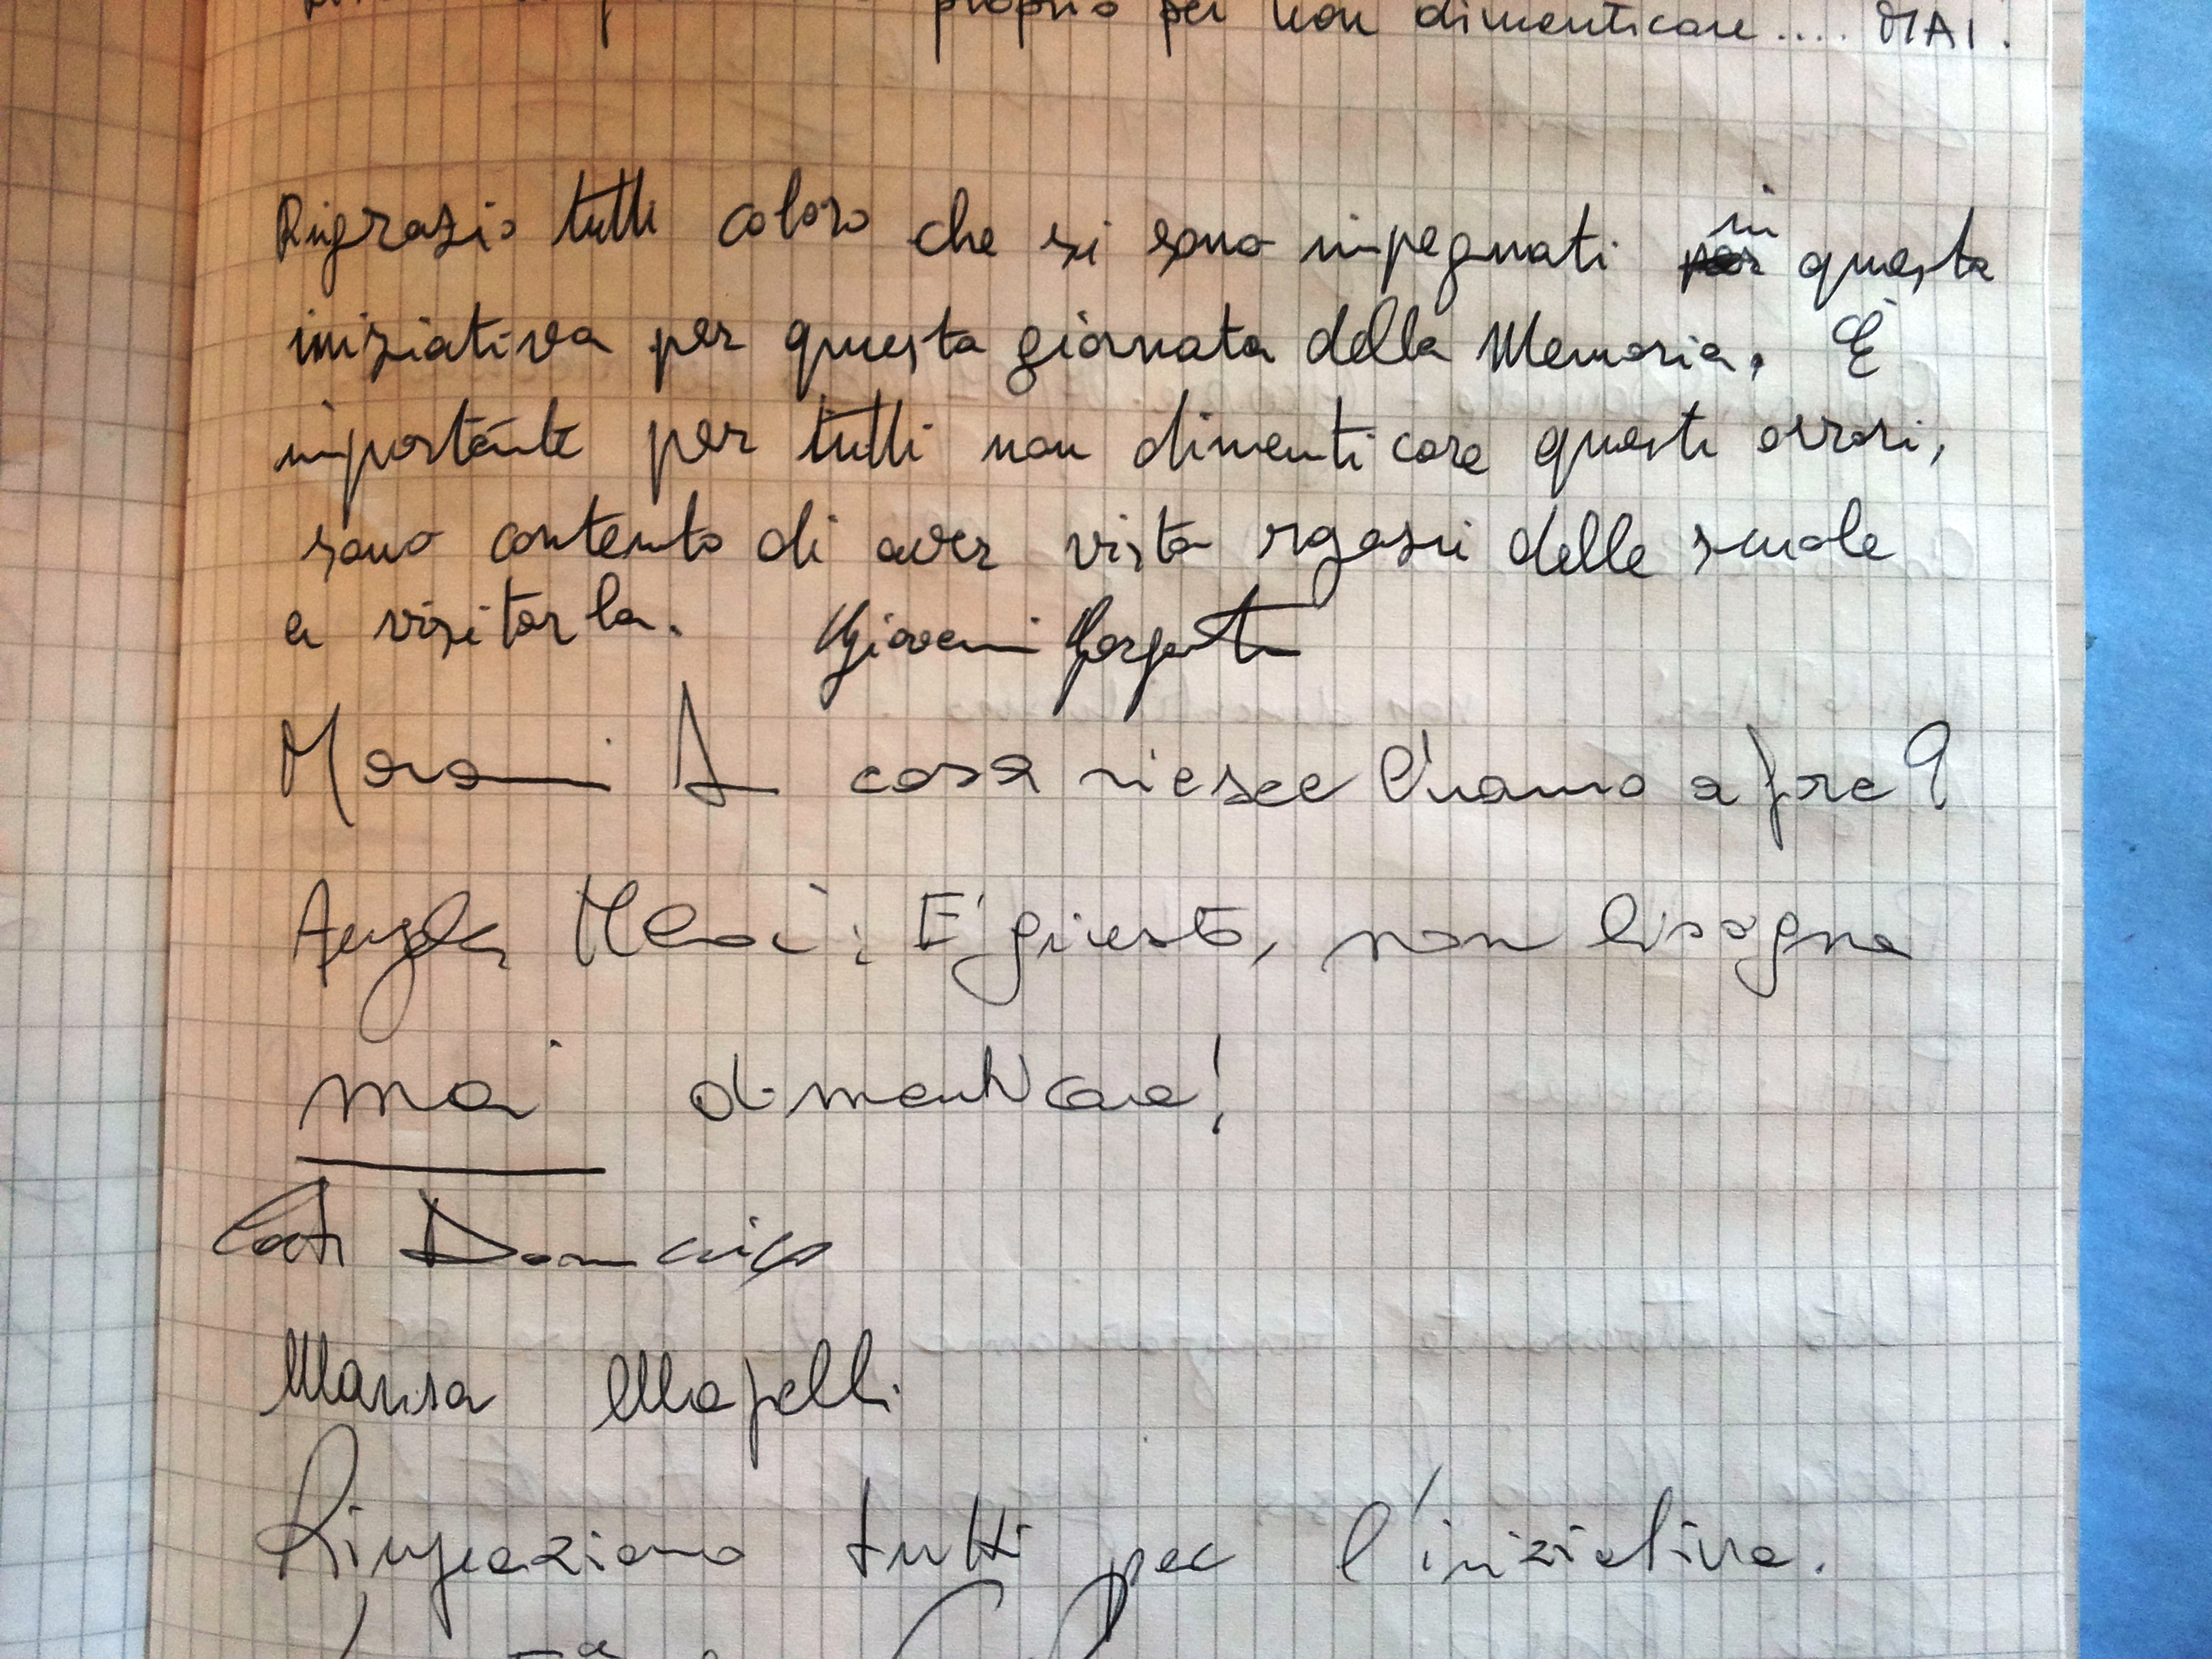 proprio per non dimenticare.... MAI.
Ringrazio tutti coloro che si sono impegnati in questa
iniziativa per questa giornata della Memoria. È
importante per tutti non dimenticare questi orrori,
sono contento di aver visto rgazzi delle scuole
a visitarla. Giovanni
cosa riesce l'uomo a fre?
Angela : E' giusto, non bisogna
mai dimenticare!
Marisa Mapelli
Ringraziamo tutti per l'iniziativa.